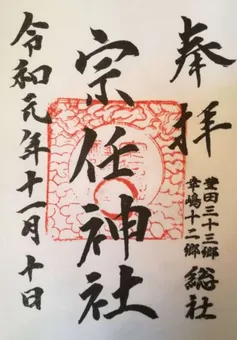 奉拝
豊田三十三郷
幸嶋十二郷
総社
宗任神社
令和元年十一月十日